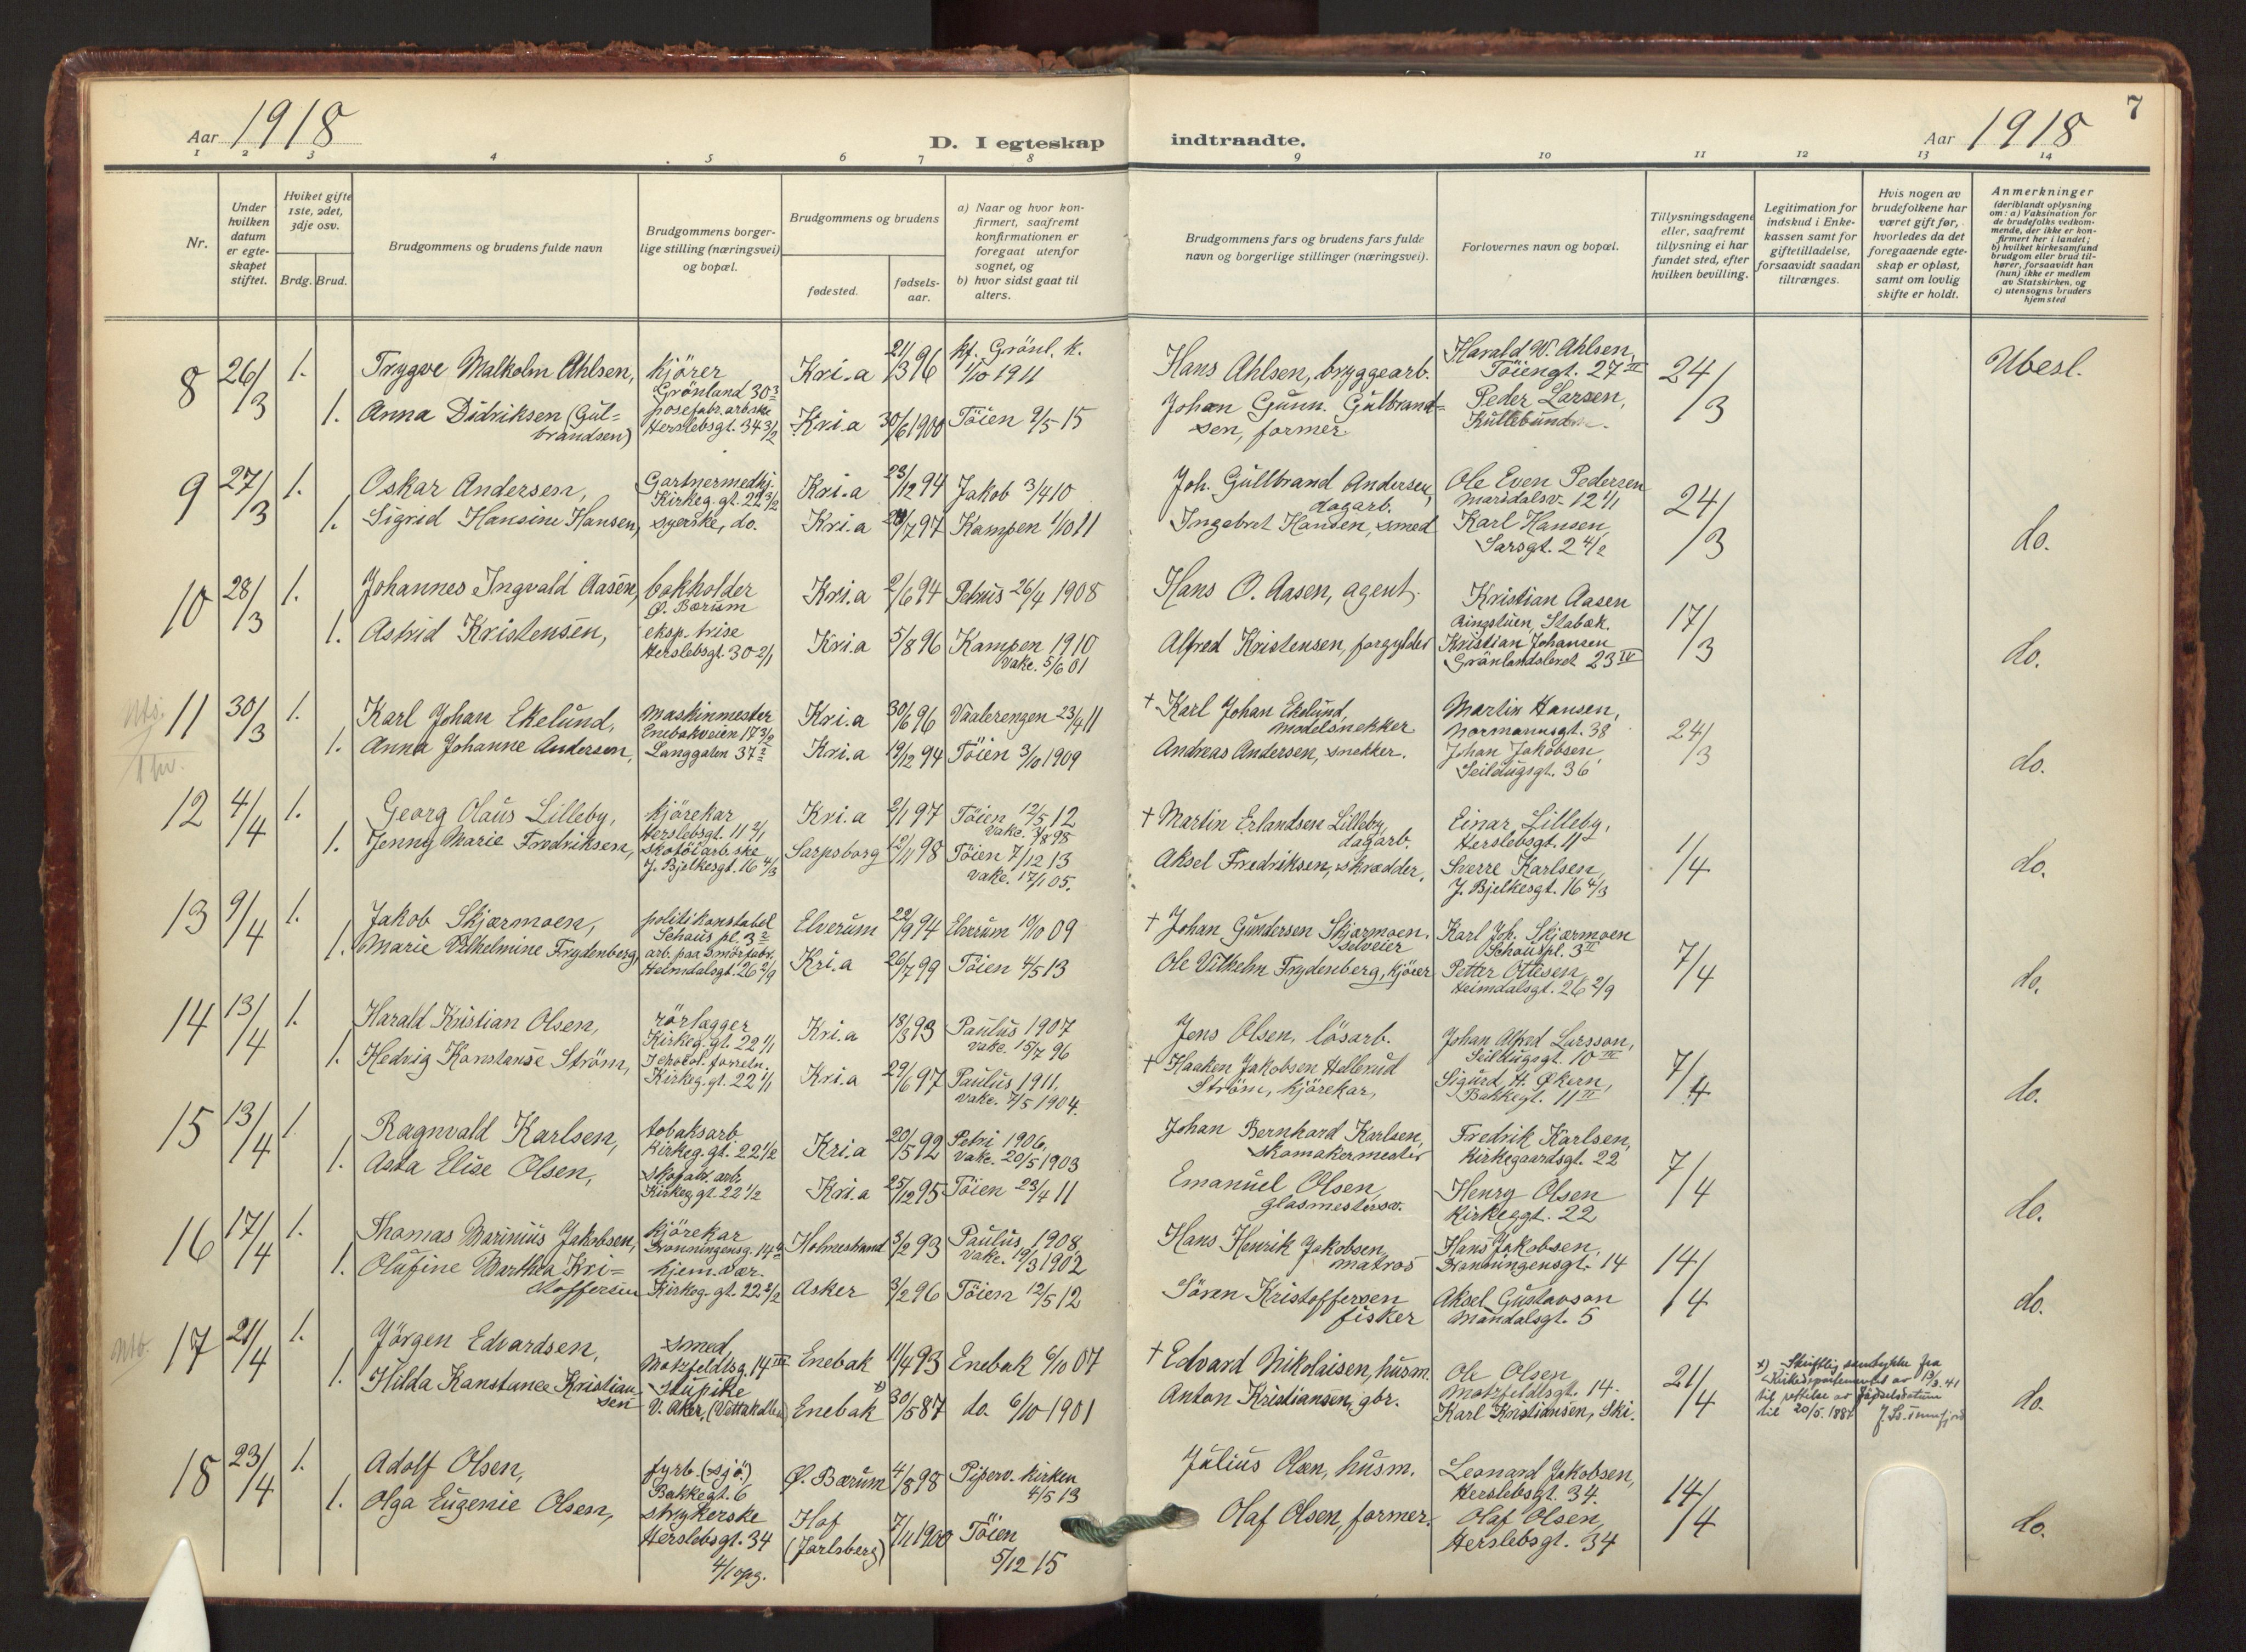 7
Aar 1918
D. I egteskap indtraadte.
Aar 1918
1 2 3 4 5 6 7 8 9 10 11 12 13 14
Nr.
Under hvilken datum er egteskapet stiftet.
Hviket gifte 1ste, 2det, 3dje osv.
Brdg. Brud.
Brudgommens og brudens fulde navn
Brudgommens borgerlige stilling (næringsvei) og bopæl.
Brudgommens og brudens
fødested.
fødselsaar.
a) Naar og hvor konfirmert, saafremt konfirmationen er foregaat utenfor sognet, og
b) hvor sidst gaat til alters.
Brudgommens fars og brudens fars fulde navn og borgerlige stillinger (næringsvei).
Forlovernes navn og bopæl.
Tillysningsdagene eller, saafremt tillysning ei har fundet sted, efter hvilken bevilling.
Legitimation for indskud i Enkekassen samt for giftetilladelse, forsaavidt saadan tiltrænges.
Hvis nogen av brudefolkene har været gift før, hvorledes da det foregaaende egteskap er opløst, samt om lovlig skifte er holdt.
Anmerkninger (deriblandt oplysning om: a) Vaksination for de brudefolks vedkommende, der ikke er konfirmert her i landet; b) hvilket kirkesamfund brudgom eller brud tilhører, forsaavidt han (hun) ikke er medlem av Statskirken, og c) utensogns bruders hjemsted
8 26/3 1. Trygve Malkolm Ahlsen, kjörer Grönland 30 3 Kri.a 21/3 96 kf. Grönl. k. 1/10 1911 Hans Ahlsen, bryggearb. Harald W. Ahlsen, Töiengt. 27 III 24/3 Ubesl.
1. Anna Didriksen (Gulbrandsen) posefabr. arb.ske Herslebsgt. 34 3/2 Kri.a 30/6 1900 Töien 2/5 15 Johan Gunn. Gulbrandsen, former Peder Larsen,
9 27/3 1. Oskar Andersen, Gartnermedhj. Kirkeg. gt. 22 3/2 Kri.a 23/12 94 Jakob 3/4 10 Joh. Gullbrand Andersen, dagarb. Ole Even Pedersen Maridalsv. 12 1/1 24/3 do.
1. Sigrid Hansine Hansen, syerske, do. Kri.a 97 Kampen 1/10 11 Ingebret Hansen, smed Karl Hansen, Sarsgt. 2 4/2
10 28/3 1. Johannes Ingvald Aasen, bokholder Ø. Bærum Kri.a 2/6 94 Petrus 26/4 1908 Hans O. Aasen, agent. Kristian Aasen Ringstuen, Stabæk. 17/3 do.
1. Astrid Kristensen, eksp. trise Herslebsgt. 30 2/1 Kri.a 5/8 96 Kampen 1910 vakc. 5/6 01 Alfred Kristensen, forgylder Kristian Johansen Grönlandsleret 23 IV
11 30/3 1. Karl Johan Ekelund, Maskinmester Enebakveien 17 3/2 Kri.a 30/6 96 Vaalerengen 23/4 11 † Karl Johan Ekelund, modelsnekker Martin Hansen, Normannsgt. 38 24/3 do.
1. Anna Johanne Andersen, Langgaten 37 2 Kri.a 19/12 94 Töien 3/10 1909 Andreas Andersen, snekker. Johan Jakobsen Seildugsgt. 36
12 4/4 1. Georg Olaus Lilleby, kjörekar Herslebsgt. 11 2/1 Kri.a 2/1 97 Töien 12/5 12 vakc. 3/8 98 † Martin Erlandsen Lilleby, dagarb. Einar Lilleby, Herslebsgt. 11 1/4 do.
1. Jenny Marie Fredriksen, skotöiarb.ske J. Bjelkesgt. 16 4/3 Sarpsborg 12/11 98 Töien 7/12 13 vakc. 17/1 05. Aksel Fredriksen, skrædder, Sverre Karlsen, J. Bjelkesgt. 16 4/3
13 9/4 1. Jakob Skjærmoen, politikonstabel Schaus pl. 3 2 Elverum 22/9 94 Elverum 10/10 09 † Johan Gundersen Skjærmoen, selveier Karl Joh. Skjærmoen Schauspl. 3 II 7/4 do.
1. Marie Vilhelmine Frydenberg, arb. paa smörfabr. Heimdalsgt. 26 2/9 Kri.a 26/7 99 Töien 4/5 13 Ole Vilhelm Frydenberg, kjörer Petter Ottesen, Heimdalsgt. 26 2/9
14 13/4 1. Harald Kristian Olsen, rörlægger Kirkeg. gt. 22 1/1 Kri.a 18/3 93 Paulus 1907 vakc. 15/7 96 Jens Olsen, lösarb. Johan Alfred Larsson, Seildugsgt. 10 III 7/4 do.
1. Hedvig Konstanse Ström, Kirkeg. gt. 22 1/1 Kri.a 29/6 97 Paulus 1911. vakc. 7/5 1904. † Haaken Jakobsen Hellerud Ström, kjörekar, Sigurd H. Økern, Bakkegt. 11 II
15 13/4 1. Ragnvald Karlsen, tobaksarb. Kirkeg. gt. 22 1/2 Kri.a 20/5 92 Petri 1906, vakc. 20/5 1903 Johan Bernhard Karlsen, skomakermester Fredrik Karlsen, Kirkegaardsgt. 22 7/4 do.
1. Asta Elise Olsen, skofabr. arb. Kirkeg. gt. 22 1/2 Kri.a 25/12 95 Töien 23/4 11 Emanuel Olsen, glasmestersv. Henry Olsen Kirkeggt. 22
16 17/4 1. Thomas Marinius Jakobsen, kjörekar Dronningensg. 14 4 Holmestrand 3/2 93 Paulus 1908, vakc. 19/3 1902 Hans Henrik Jakobsen, matros Hans Jakobsen, Dronningensgt. 14 14/4 do.
1. Olufine Marthea Kristoffersen hjem.vær. Kirkeg. gt. 22 2/2 Asker 3/2 96 Töien 12/5 12 Sören Kristoffersen fisker Aksel Gustavson Mandalsgt. 5
17 21/4 1. Jörgen Edvardsen, smed Motzfeldtsg. 14 III Enebak 11/4 93 Enebak 6/10 07 † Edvard Nikolaisen, husm. Ole Olsen Motzfeldtsgt. 14. 21/4 do.
1. Hilda Konstance Kristiansen stupike V. Aker, (Vettakollen) Enebak x) 30/5 87 do. 6/10 1901 Anton Kristiansen, gbr. Karl Kristiansen, Ski.
x) Skriftlig samtykke fra Kirkedepartementet av 13/3. 41 til rettelse av fødselsdatum til 20/5. 1887
18 23/4 1. Adolf Olsen, fyrb. (sjö.) Bakkegt. 6 Ø. Bærum 4/8 98 Piperv. kirken 4/5 13 Julius Olsen, husm. Leonard Jakobsen, Herslebsgt. 34. 14/4 do.
1. Olga Eugenie Olsen, strykerske Herslebsgt. 34 4/1 opg. Hof (Jarlsberg) 7/11 1900 Töien 5/12 15 Olaf Olsen, former. Olaf Olsen, Herslebsgt. 34